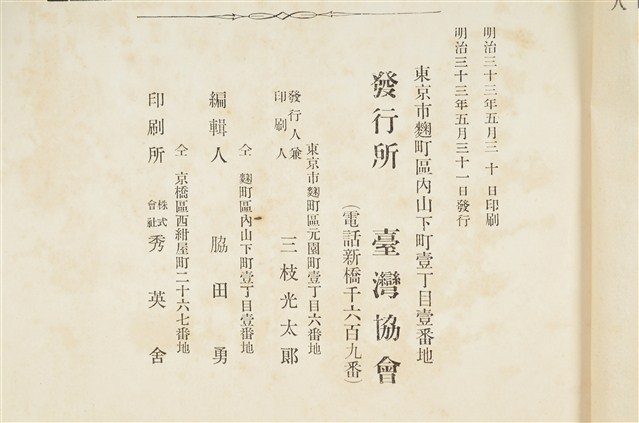 明治三十三年五月三十日印刷
明治三十三年五月三十一日發行
東京市麴町區內山下町壹丁目壹番地
發行所 臺灣協會
(電話新橋千六百九番)
東京市麴町區元園町壹丁目六番地
發行人兼印刷人 三枝光太郎
仝 麴町區內山下町壹丁目壹番地
編輯人 脇田勇
仝 京橋區西紺屋町二十六七番地
印刷所 株式會社 秀英舍